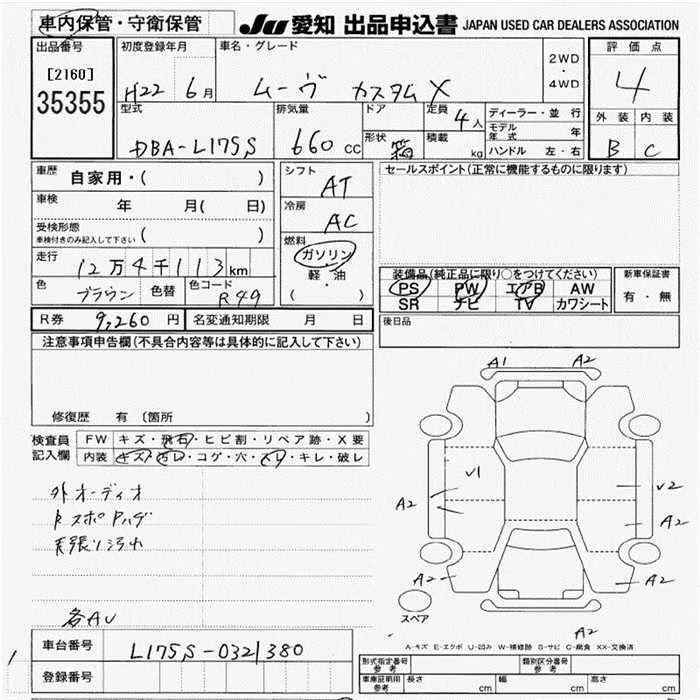 車内保管・守衛保管
JU 愛知 出品申込書 JAPAN USED CAR DEALERS ASSOCIATION
出品番号 初度登録年月 車名・グレード 評価点
[2160] 2WD
35355 H22 6月 ムーヴ カスタムX ・ 4
4WD
型式 排気量 ドア 定員 4人 ディーラー・並行 外装 内装
モデル年式 年
DBA-L175S 660cc 形状 箱 積載 kg ハンドル 左・右 B C
車歴 自家用・( ) シフト AT セールスポイント(正常に機能するものに限ります)
車検 年 月( 日) 冷房 AC
受検形態
車検付きのみ記入して下さい ( ) 燃料
走行 12万4千113km ガソリン 装備品(純正品に限り○をつけてください) 新車保証書
色 ブラウン 色替 色コード R49 軽・油 PS PW エアB AW 有・無
( ) SR ナビ TV カワシート
R券 9,260円 名変通知期限 月 日 後日品
注意事項申告欄(不具合内容等は具体的に記入して下さい)
A1 A2
修復歴 有 〔箇所 〕
検査員 FW キズ・飛石・ヒビ割・リペア跡・X要
記入欄 内装 キズ・汚レ・コゲ・穴・スレ・キレ・破レ
V1 V2
外オーディオ A2
スポ A2
天張り汚れ
A2 A2
各AU
スペア
A2
A-キズ E-エクボ U-凹み W-補修跡 S-サビ C-腐食 XX-交換済
車台番号 L175S-0321380
登録番号 型式指定番号 参考 類別区分番号 参考
車庫証明用 参考 長さ cm 幅 cm 高さ cm